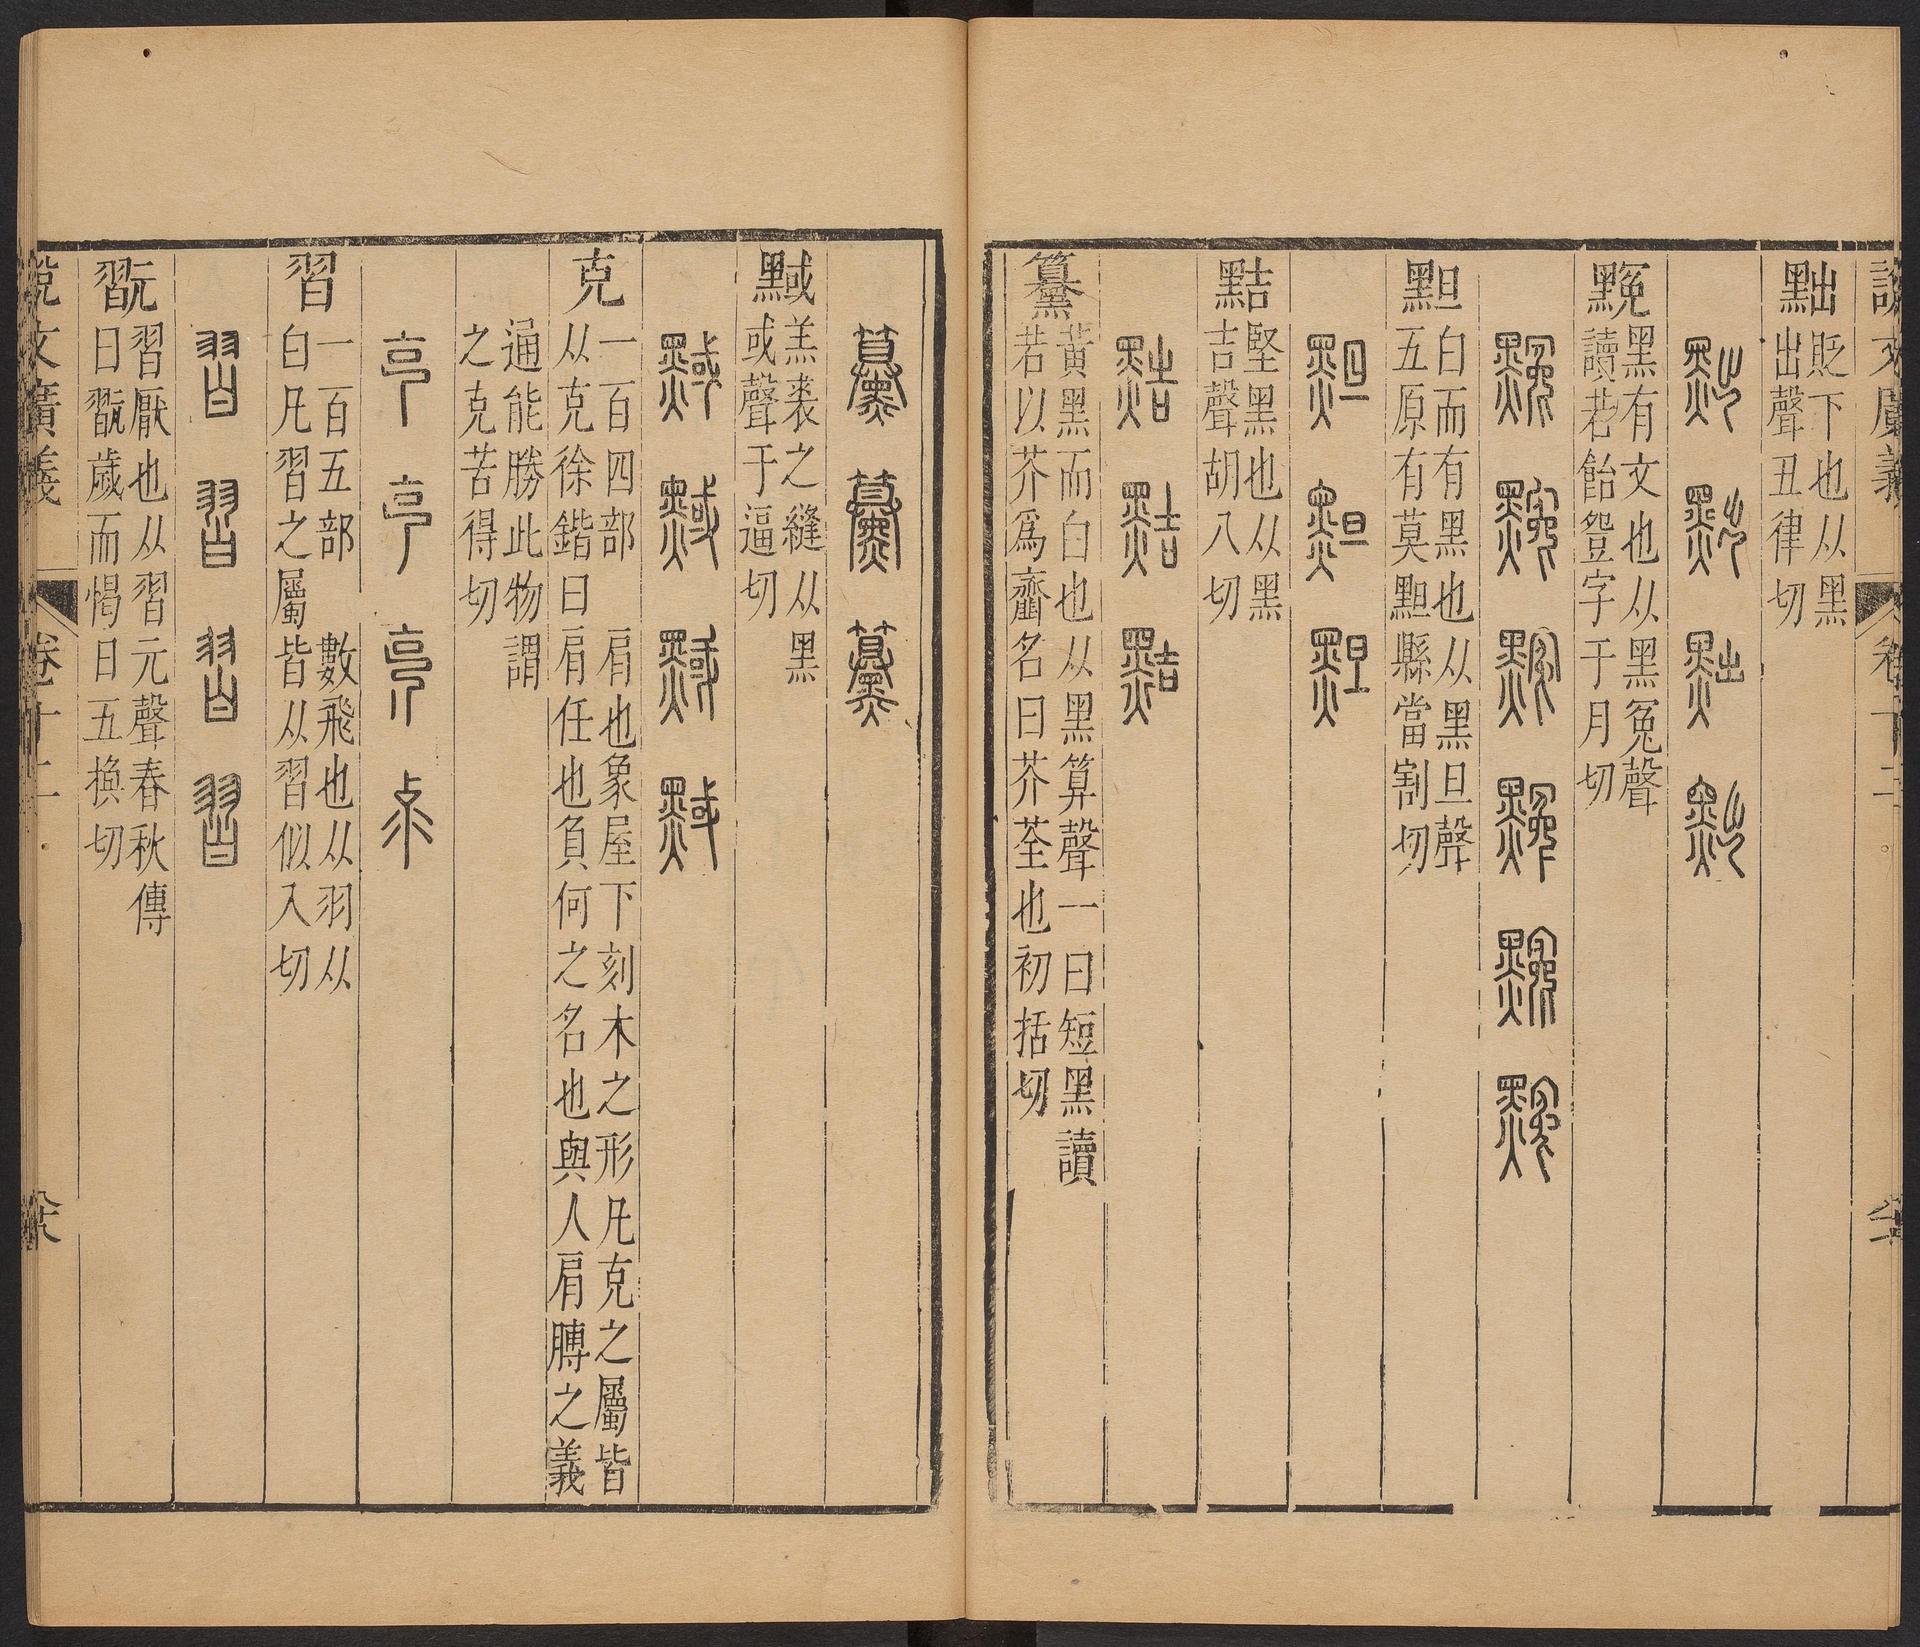 說文廣義
卷十二
黜
貶下也从黑
出聲丑律切
䵫
黑有文也从黑冤聲
讀若飴䇂字于月切
黚
白而有黑也从黑旦聲
五原有莫䵣縣當割切
黠
堅黑也从黑
吉聲胡八切
䵵
黃黑而白也从黑算聲一曰短黑讀
若以芥爲齏名曰芥荃也初括切
黬
羔裘之縫从黑
或聲于逼切
克
一百四部 肩也象屋下刻木之形凡克之屬皆
从克徐鍇曰肩任也負何之名也與人肩膊之義
通能勝此物謂
之克苦得切
習
一百五部 數飛也从羽从
白凡習之屬皆从習似入切
翫
習厭也从習元聲春秋傳
曰翫歲而愒日五換切
說文廣義
卷十二